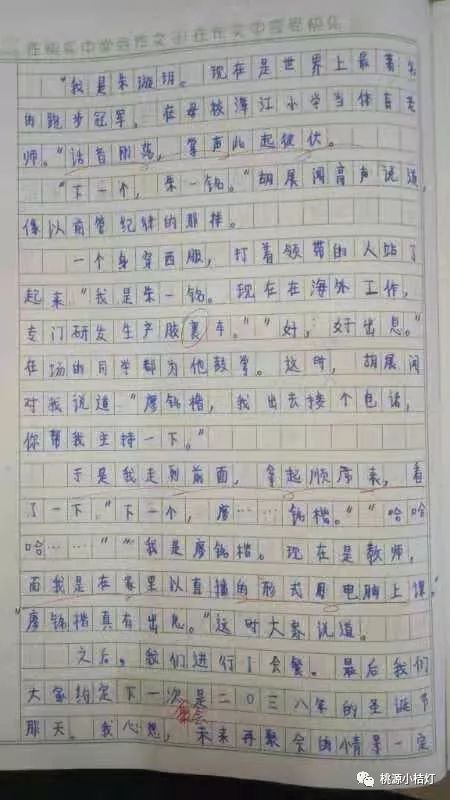 在快乐中学会作文 在作文中享受快乐
“我是朱璇玥。现在是世界上最著名
的跑步冠军，在母校漳江小学当体育老
师。”话音刚落，掌声此起彼伏。
“下一个，朱一铭。”胡展闻高声说道，
像以前管纪律的那样。
一个身穿西服，打着领带的人站了
起来“我是朱一铭。现在在海外工作，
专门研发生产胶囊车。”“好，好出息。”
在场的同学都为他鼓掌。这时，胡展闻
对我说道“廖铭楷，我出去接个电话，
你帮我主持一下。”
于是我走到前面，拿起顺序来，看
了一下“下一个，廖……铭楷。”“哈哈
哈……”“我是廖铭楷。现在是教师，
而我是在家里以直播的形式用电脑上课。”
“廖铭楷真有出息。”这时大家说道。
之后，我们进行了会餐。最后我们
大家约定下一次是二〇三八年的圣诞节
聚会
那天。我心想，未来再聚会的情景一定
桃源小桔灯